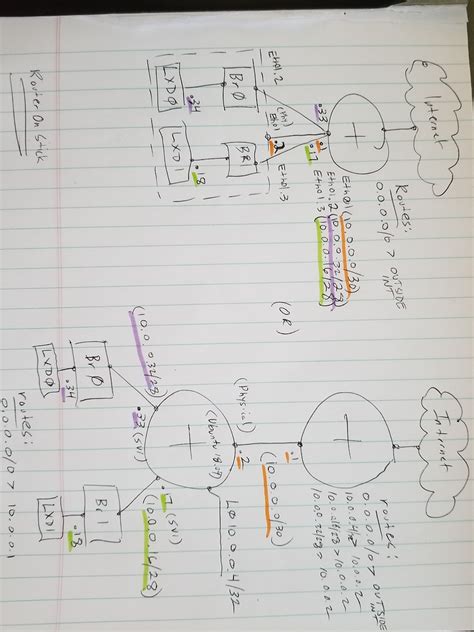 Router On Stick
Internet
Routes:
0.0.0.0/0 > OUTSIDE
INT
Eth01 (10.0.0.0/30)
Eth01.2 (10.0.0.32/28)
Eth01.3 (10.0.0.16/28)
.33
.1
.17
Eth01.2
.2
Eth01.3
Br0
BR
.34
.18
LXD0
LXD1
(OR)
Internet
routes:
0.0.0.0/0 > OUTSIDE
INT
10.0.0.2
10.0.0.16/28 > 10.0.0.2
10.0.0.32/28 > 10.0.0.2
.1
(Physical)
(10.0.0.0/30)
.2
L0 10.0.0.4/32
(10.0.0.32/28)
.33 (SVI)
.17 (SVI)
(10.0.0.16/28)
Br0
Br1
.34
.18
LXD0
LXD1
routes:
0.0.0.0/0 > 10.0.0.1